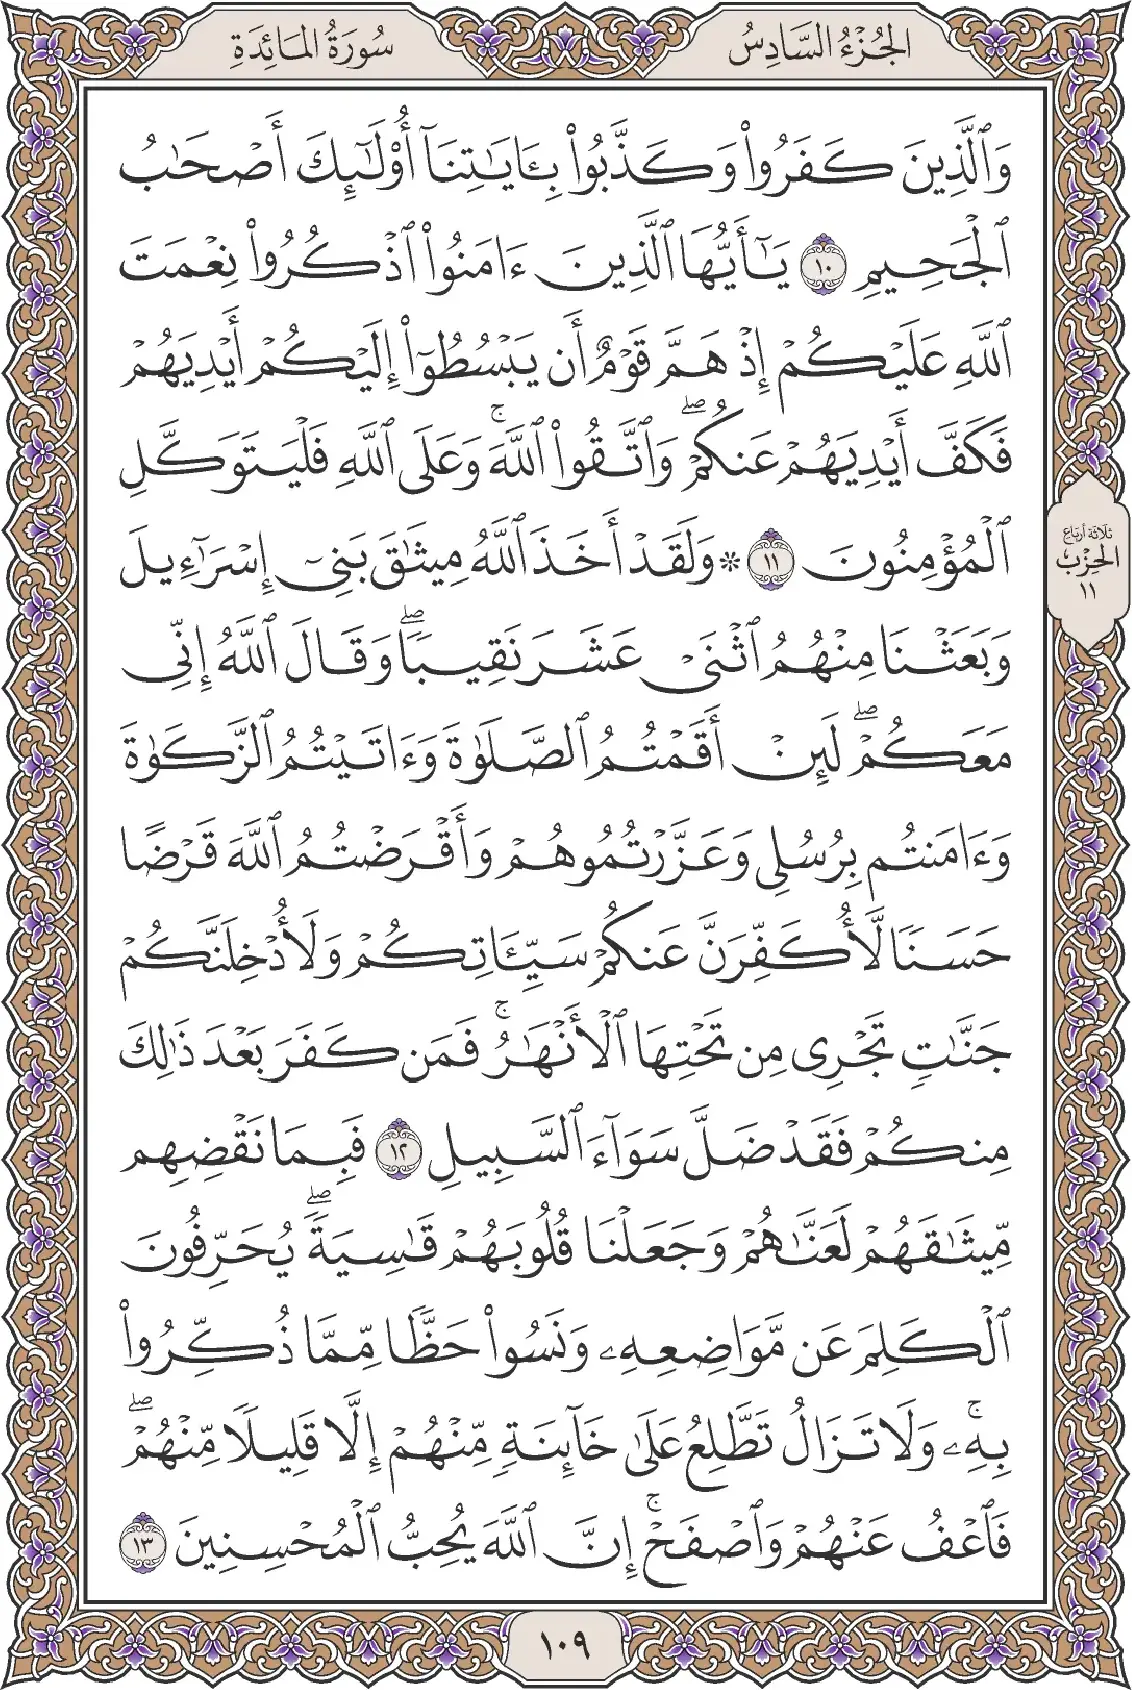 الجُزْءُ السَّادِسُ
سُورَةُ المَائِدَةِ
وَٱلَّذِينَ كَفَرُوا۟ وَكَذَّبُوا۟ بِـَٔايَـٰتِنَآ أُو۟لَـٰٓئِكَ أَصْحَـٰبُ
ٱلْجَحِيمِ ١٠ يَـٰٓأَيُّهَا ٱلَّذِينَ ءَامَنُوا۟ ٱذْكُرُوا۟ نِعْمَتَ
ٱللَّهِ عَلَيْكُمْ إِذْ هَمَّ قَوْمٌ أَن يَبْسُطُوٓا۟ إِلَيْكُمْ أَيْدِيَهُمْ
فَكَفَّ أَيْدِيَهُمْ عَنكُمْ ۖ وَٱتَّقُوا۟ ٱللَّهَ ۚ وَعَلَى ٱللَّهِ فَلْيَتَوَكَّلِ
ٱلْمُؤْمِنُونَ ١١ * وَلَقَدْ أَخَذَ ٱللَّهُ مِيثَـٰقَ بَنِىٓ إِسْرَٰٓءِيلَ
وَبَعَثْنَا مِنْهُمُ ٱثْنَىْ عَشَرَ نَقِيبًا ۖ وَقَالَ ٱللَّهُ إِنِّى
مَعَكُمْ ۖ لَئِنْ أَقَمْتُمُ ٱلصَّلَوٰةَ وَءَاتَيْتُمُ ٱلزَّكَوٰةَ
وَءَامَنتُم بِرُسُلِى وَعَزَّرْتُمُوهُمْ وَأَقْرَضْتُمُ ٱللَّهَ قَرْضًا
حَسَنًا لَّأُكَفِّرَنَّ عَنكُمْ سَيِّـَٔاتِكُمْ وَلَأُدْخِلَنَّكُمْ
جَنَّـٰتٍ تَجْرِى مِن تَحْتِهَا ٱلْأَنْهَـٰرُ ۚ فَمَن كَفَرَ بَعْدَ ذَٰلِكَ
مِنكُمْ فَقَدْ ضَلَّ سَوَآءَ ٱلسَّبِيلِ ١٢ فَبِمَا نَقْضِهِم
مِّيثَـٰقَهُمْ لَعَنَّـٰهُمْ وَجَعَلْنَا قُلُوبَهُمْ قَـٰسِيَةً ۖ يُحَرِّفُونَ
ٱلْكَلِمَ عَن مَّوَاضِعِهِۦ وَنَسُوا۟ حَظًّا مِّمَّا ذُكِّرُوا۟
بِهِۦ ۚ وَلَا تَزَالُ تَطَّلِعُ عَلَىٰ خَآئِنَةٍ مِّنْهُمْ إِلَّا قَلِيلًا مِّنْهُمْ ۖ
فَٱعْفُ عَنْهُمْ وَٱصْفَحْ ۚ إِنَّ ٱللَّهَ يُحِبُّ ٱلْمُحْسِنِينَ ١٣
ثلاثة أرباع
الحِزْب
١١
١٠٩